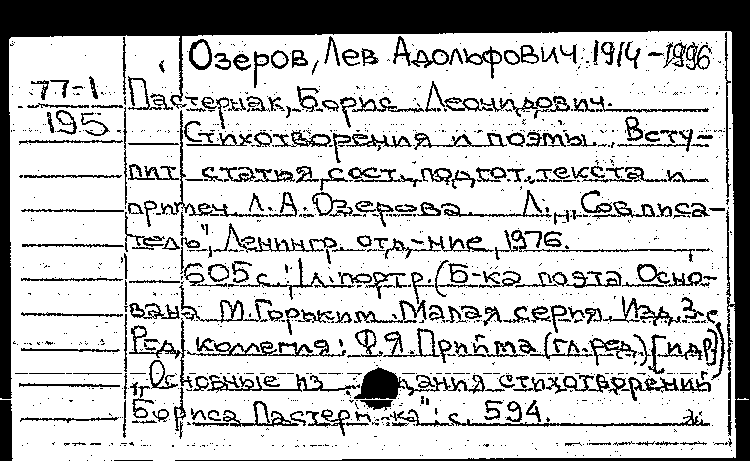 Озеров, Лев Адольфович 1914-1996
77-1
Пастернак, Борис Леонидович.
195
Стихотворения и поэмы. Всту-
пит. статья, сост., подгот. текста и
примеч. Л.А. Озерова. Л., „Сов. писа-
тель", Ленингр. отд-ние, 1976.
605 с.; 1 л. портр. (Б-ка поэта. Осно-
вана М. Горьким. Малая серия. Изд. 3-е
Ред. коллегия: Ф.Я. Прийма (гл. ред.) [и др.])
„Основные из дания стихотворений
Бориса Пастерн ка": с. 594.